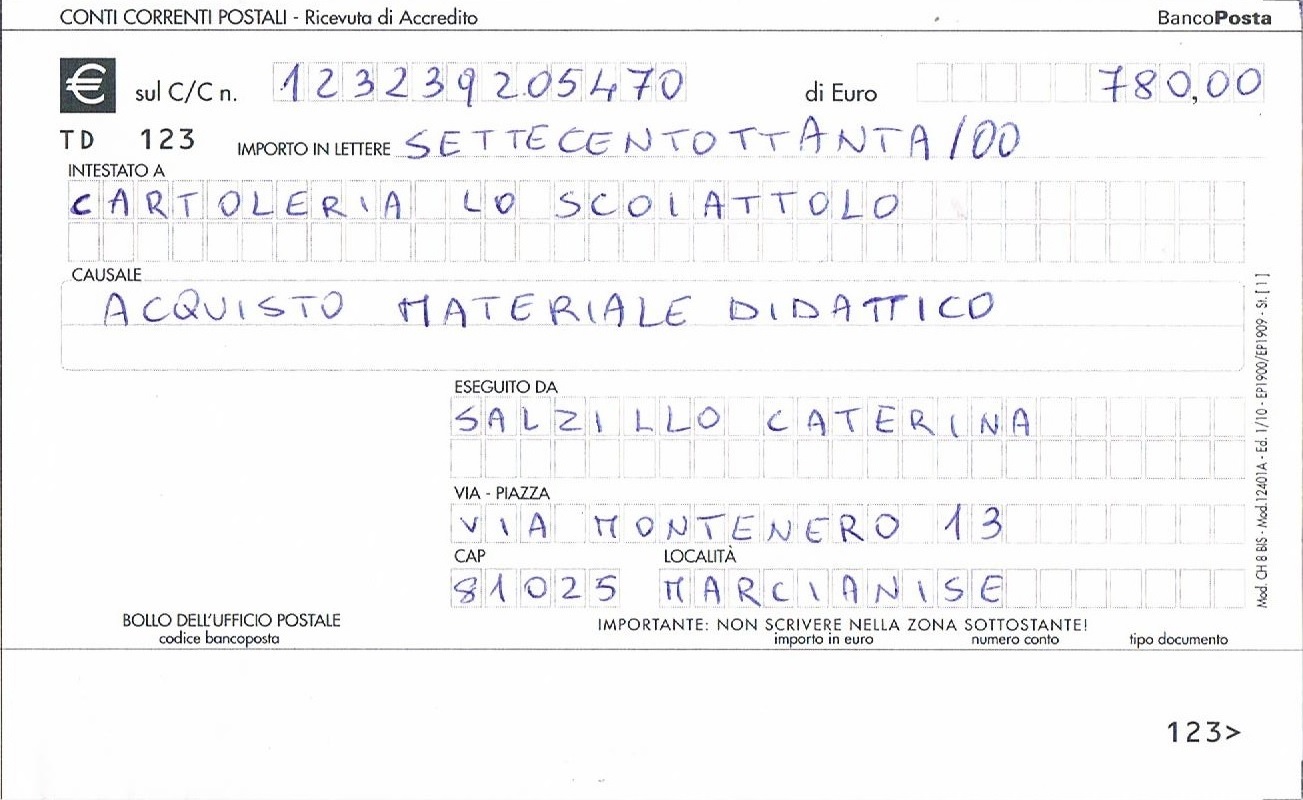 CONTI CORRENTI POSTALI - Ricevuta di Accredito BancoPosta
€ sul C/C n. 123239205470 di Euro 780,00
TD 123 IMPORTO IN LETTERE SETTECENTOTTANTA/00
INTESTATO A
CARTOLERIA LO SCOIATTOLO
CAUSALE
ACQUISTO MATERIALE DIDATTICO
ESEGUITO DA
SALZILLO CATERINA
VIA - PIAZZA
VIA MONTENERO 13
CAP LOCALITÀ
81025 MARCIANISE
BOLLO DELL'UFFICIO POSTALE
codice bancoposta
IMPORTANTE: NON SCRIVERE NELLA ZONA SOTTOSTANTE!
importo in euro numero conto tipo documento
123>
Mod. CH 8 BIS - Mod.12401A - Ed. 1/10 - EP1900/EP1909 - St. [1]